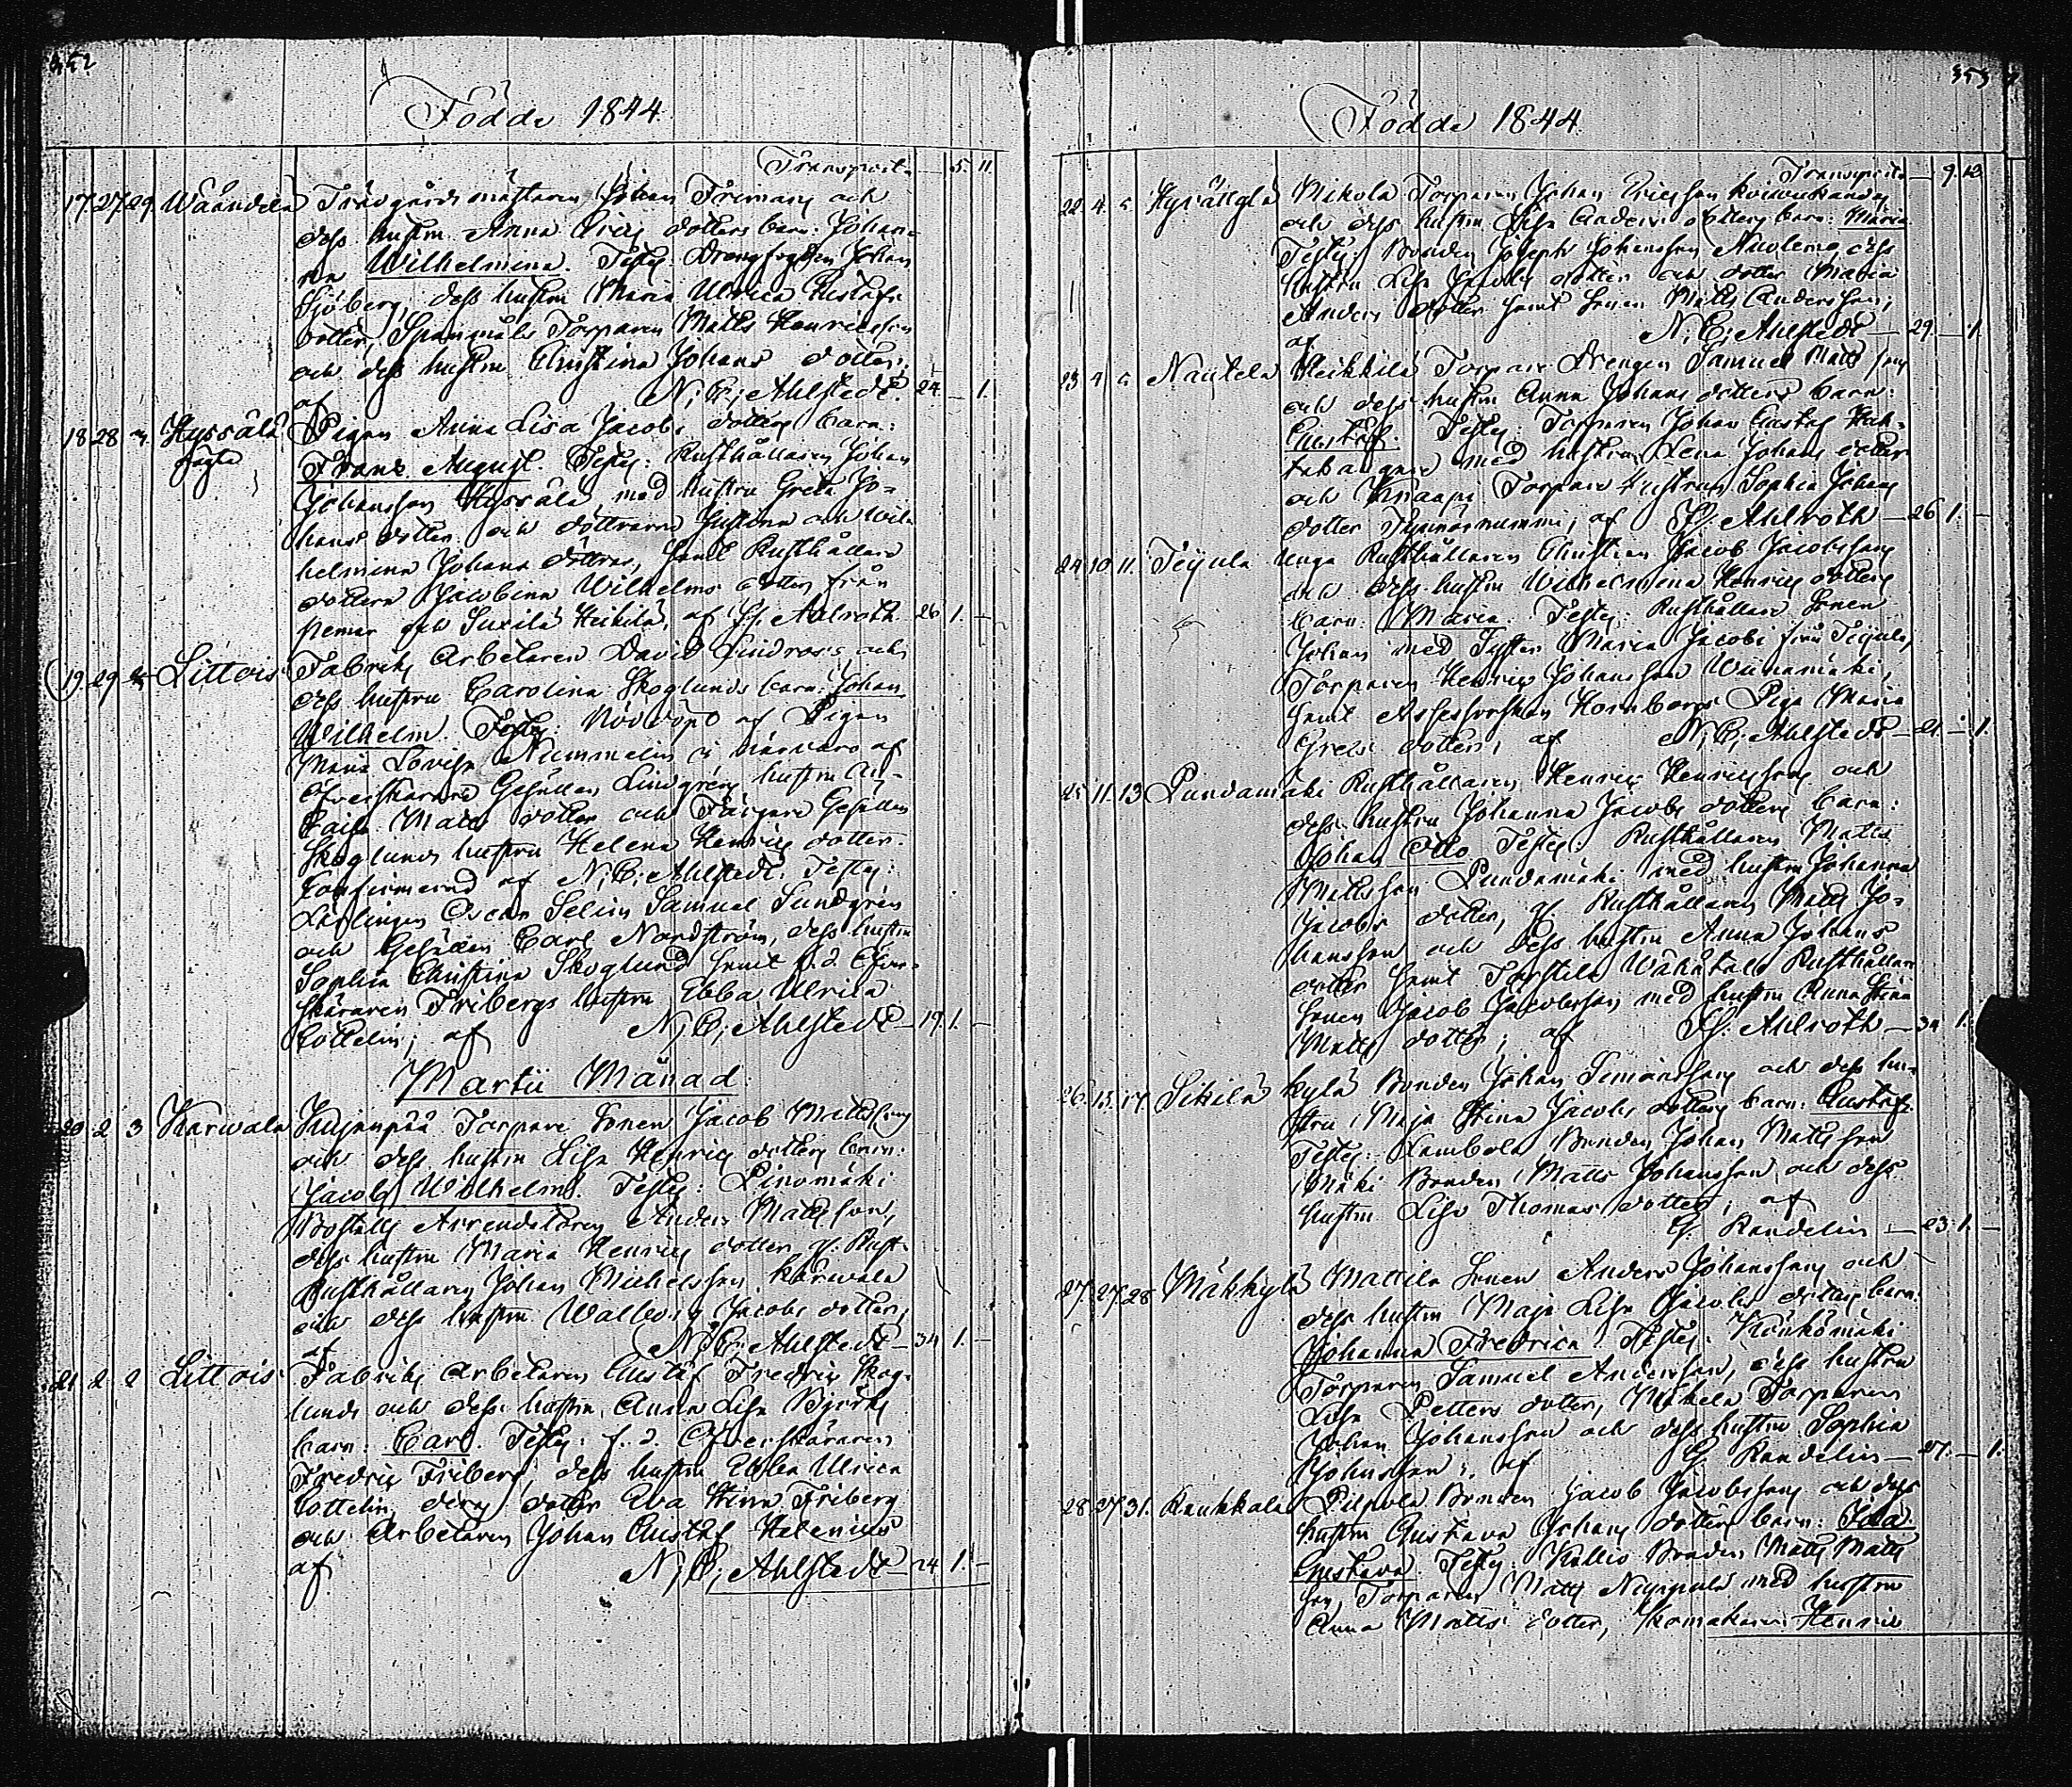 352
Födde 1844.
Transport — 5. 11.
17. 27. 29. Wäändelä Trädgårdsmästaren Johan Frimans och
dess hustru Anna Erics dotters barn: Johan-
na Wilhelmina. Testes: Drengfogden Johan
Sjöberg, dess hustru Maria Ulrica Gustafs
dotter, Spannmåls Torparen Matts Henricsson
och dess hustru Christina Johans dotter;
af N. E. Ahlstedt. 24. — 1.
18. 28 Hyssälä Pigan Anna Lisa Jacobs dotters barn:
Franz August. Testes: Rusthållaren Johan
Johansson Hyssälä med hustru Greta Jo-
hans dotter och döttrarna Justina och Wil-
helmina Johans döttrar, samt Rusthållare
dottern Jacobina Wilhelms dotter från
Pemar och Suxilä Heikilä, af Ahlroth. 26 1. —
19. 29 Littois Fabriks Arbetaren David Lindroos och
dess hustru Carolina Skoglunds barn: Johan
Wilhelm. Testes: Nöddöpt af Pigan
Maria Lovisa Nummelin i närvaro af
Öfverskärare Gesällen Lindgrens hustru
Caisa Matts dotter och Färgare Gesällen
Skoglunds hustru Helena Henrics dotter.
Confirmerad af N. E. Ahlstedt. Testes:
Lärlingen Oscar Selim Samuel Sundgren
och Gesällen Carl Nordström, dess hustru
Sophia Christina Skoglund samt f. d. Öfver-
skäraren Fribergs hustru Ebba Ulrica
Cottelin; af N. E. Ahlstedt — 19. 1. —
Martii Månad.
20. 2 3 Karwala Kujanpää Torpare Sonen Jacob Mattssons
och dess hustru Lisa Henrics dotters barn:
Jacob Wilhelm. Testes: Pinomäki
Boställs Arrendatoren Anders Mattsson,
dess hustru Maria Henrics dotter, Rust-
Rusthållaren Johan Michelsson Karwala
och dess hustru Walborg Jacobs dotter,
af N. E. Ahlstedt — 34 1. —
21. 2 2 Littois Fabriks Arbetaren Gustaf Fredric Skog-
lunds och dess hustru Anna Lisa Björks
barn: Carl. Testes: f. d. Öfverskäraren
Fredric Friberg, dess hustru Ebba Ulrica
Cottelin, deras dotter Eva Stina Friberg
och Arbetaren Johan Gustaf Helenius
af N. E. Ahlstedt — 24 1. —
353
Födde 1844.
Transport — 9. 12
22. 4. Nikola Torparen Johan Ericsson
och dess hustru Lisa Anders dotters barn: Maria
Testes: Bonden Joseph Johansson dess
hustru Lisa Jacobs dotter och dotter Maria
Anders dotter samt Sonen Matts Andersson;
af N. E. Ahlstedt — 29. — 1.
23 4 Nautela Heikkilä Torpare Drengen Samuel Mattssons
och dess hustru Anna Johans dotters barn:
Gustaf. Testes: Torparen Johan Gustaf
med hustru Lena Johans dotter
och Knaapi Torpare hustrun Sophia Johans
dotter af Ahlroth — 26 1. —
24. 10 11. Teijula Unga Rusthållaren Christian Jacob Jacobssons
och dess hustru Wilhelmina Henrics dotters
barn: Maria. Testes: Rusthållare Sonen
Johan med Syster Maria Jacobs från Teijula,
Torparen Henric Johansson Wiinamäki,
samt Hornborgs Piga Maria
Grels dotter; af N. E. Ahlstedt — 21. — 1.
25 11. 13 Pundamäki Rusthållaren Henric Henricssons och
dess hustru Johanna Jacobs dotters barn:
Johan Otto Testes: Rusthållaren Matts
Mattsson Pundamäki med hustru Johanna
Jacobs dotter, Rusthållaren Matts Jo-
hansson och dess hustru Anna Johans
dotter samt Torstila Wähätalo Rusthållare
Sonen Jacob Jacobsson med hustru Anna Stina
Matts dotter; af Ahlroth — 34 1.
26. 13. 17 Sikilä kylä Bonden Johan Simonssons och dess hu-
stru Maja Stina Jacobs dotters barn: Gustaf.
Testes: Kambola Bonden Johan Mattsson
Mäki Bonden Matts Johansson och dess
hustru Lisa Thomas dotter; af
G. Randelin — 23. 1. —
27. 27. 28 Mäkkylä Mattila Sonen Anders Johanssons och
dess hustru Maja Lisa Jacobs dotters barn:
Johanna Fredrica. Testes: Könkömäki
Torparen Samuel Andersson, dess hustru
Lisa Petters dotter, Mäkelä Torparen
Johan Johansson och dess hustru Sophia
Johansson; af G. Randelin — 27. — 1.
28. 27. 31. Kaukkala Piipola Bonden Jacob Jacobssons och dess
hustru Gustava Johans dotters barn: Ida
Gustava. Testes: Kallio Bonden Matts Matts
son, Torparen Matts med hustru
Anna Matts dotter, Skomakaren Henric